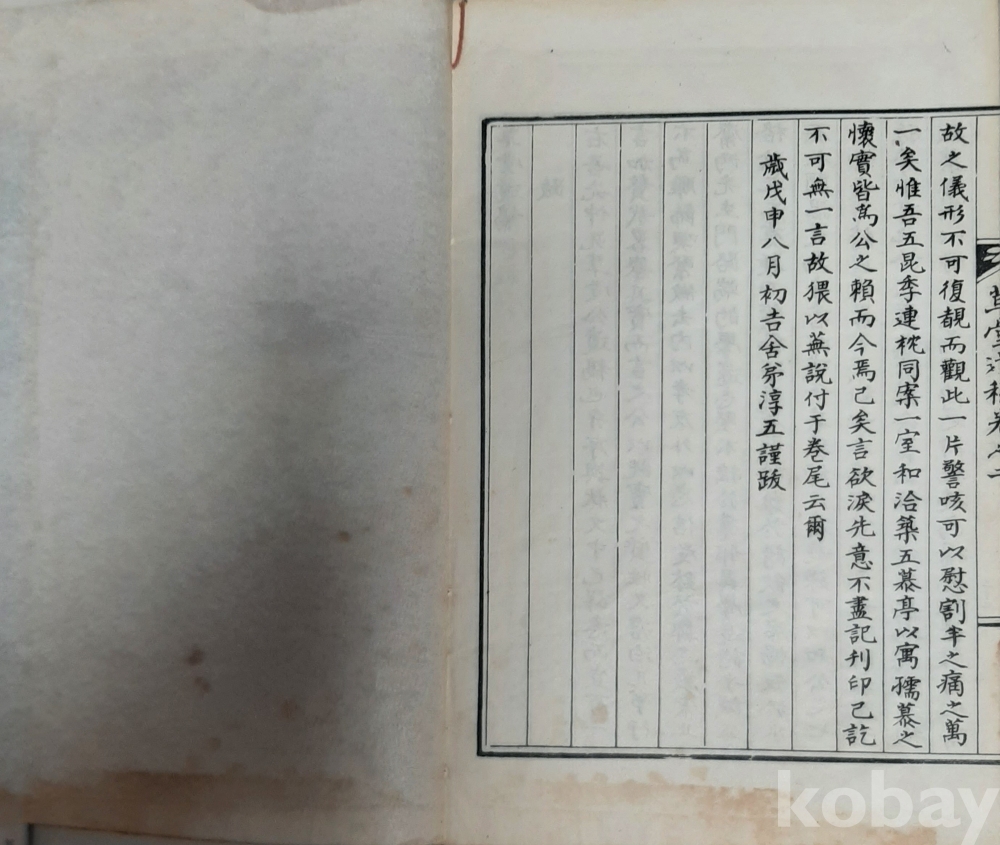 故之儀形不可復覩而觀此一片謦咳可以慰割半之痛之萬
一矣惟吾五昆季連枕同案一室和洽築五慕亭以寓孺慕之
懷實皆爲公之賴而今焉已矣言欲淚先意不盡記刊印已訖
不可無一言故猥以蕪說付于卷尾云爾
歲戊申八月初吉舍弟淳五謹跋
草堂遺稿卷之二
kobay